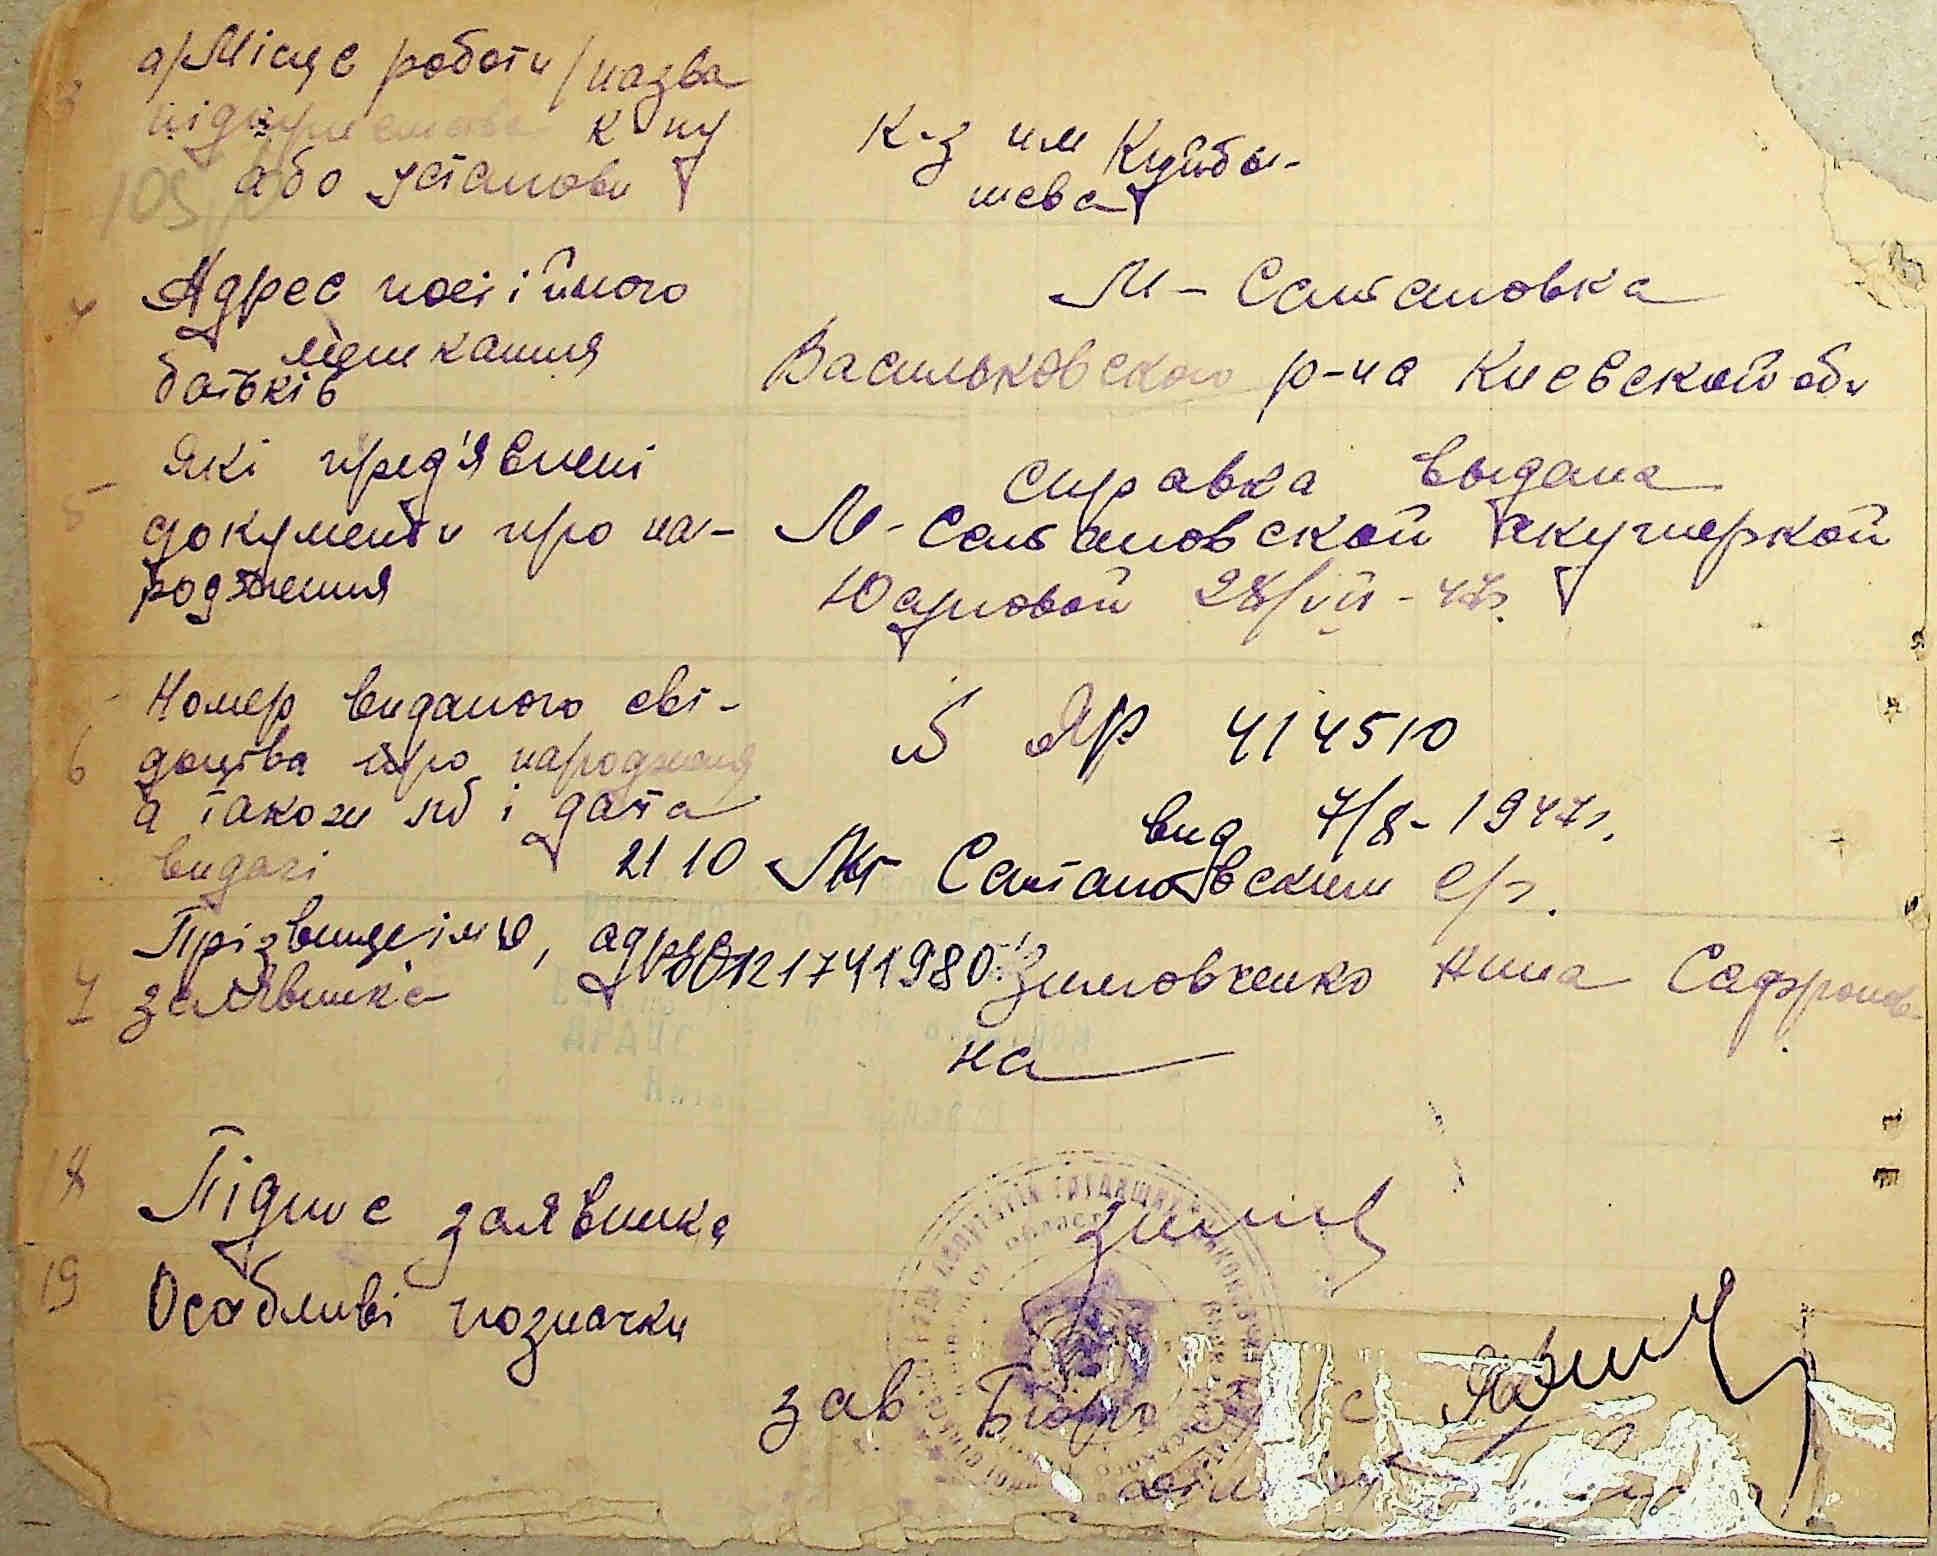 3 а/ Місце роботи /назва
підприємства к-пу
або установи
К-з им Куйбы-
шева
4 Адрес постійного
мешкання
батьків
М-Салтановка
Васильковского р-на Киевской обл
5 Які пред'явлені
документи про на-
родження
справка выдана
М-Салтановской акушеркой
28/VII-47г.
6 Номер виданого сві-
доцтва про народження
а також № і дата
видачі
ЯР 414510
вид 7/8-1947г.
2110 М Салтановским с/р.
7 Прізвище, імя, адрес
заявника
Зимовченко Нина Сафронов
на
18 Підпис заявника
Зим
19 Особливі позначки
зав Бюро